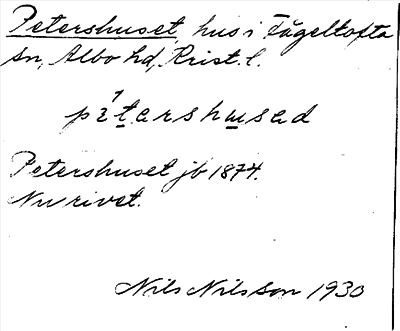 Petershuset, hus i Fågeltofta
sn, Albo hd, Krist. l.
pı́tershused
Petershuset jb 1874.
Nu rivet.
Nils Nilsson 1930